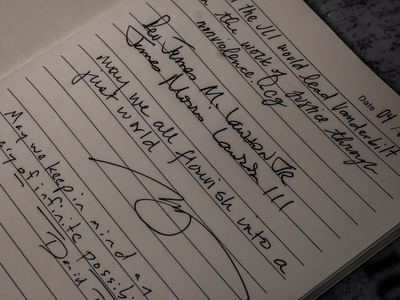 Date 04/
the JLI would lead Vanderbilt
in the work of justice through
nonviolence
Rev James M. Lawson Jr
James Morris Lawson III
may we all flourish into a
just world
May we keep in mind
of infinite possibi